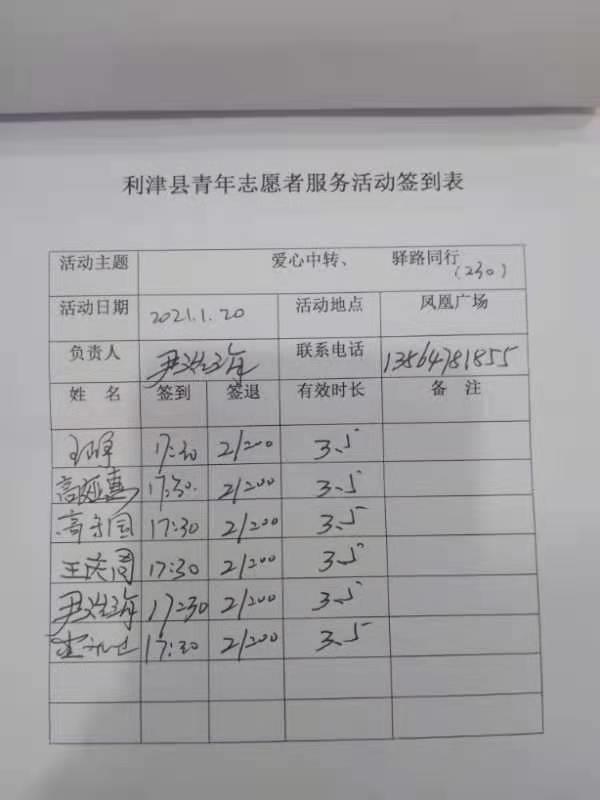 利津县青年志愿者服务活动签到表
活动主题 爱心中转、 驿路同行
(230)
活动日期 2021.1.20 活动地点 凤凰广场
负责人 联系电话 13864781855
姓名 签到 签退 有效时长 备注
17:30 21:00 3.5
高延惠 17:30 21:00 3.5
高守国 17:30 21:00 3.5
王庆周 17:30 21:00 3.5
17:30 21:00 3.5
17:30 21:00 3.5